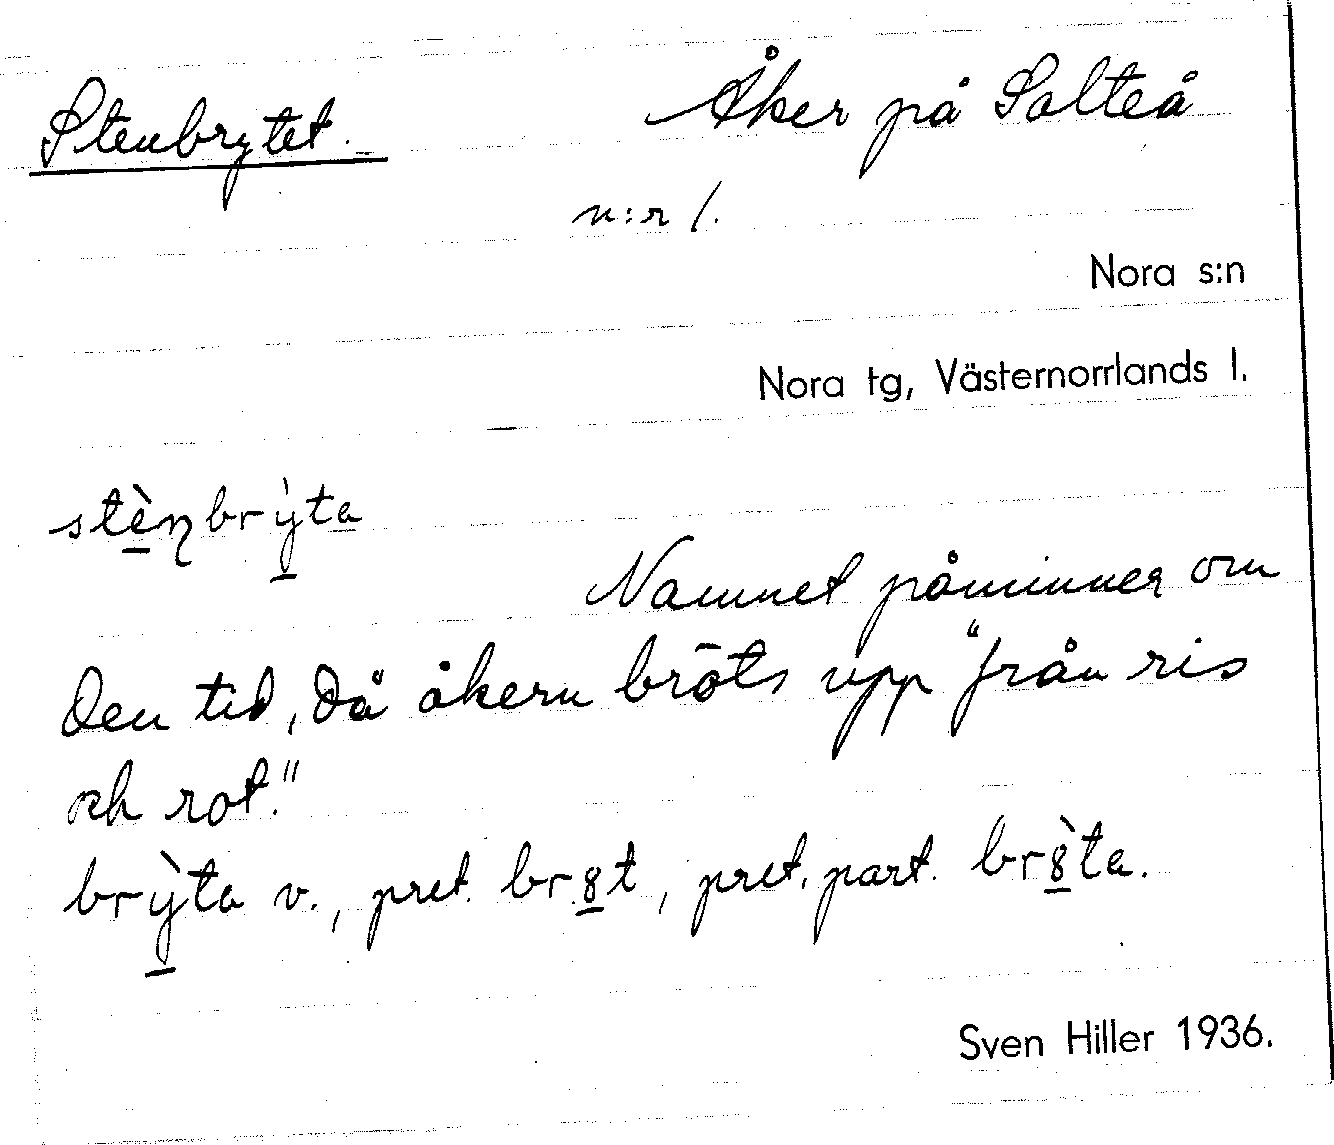 Stenbrytet. Åker på Salteå
n:r 1.
Nora s:n
Nora tg, Västernorrlands l.
stè̱ŋbrỳ̱ta
Namnet påminner om
den tid, då åkern bröts upp "från ris
och rot."
brỳ̱ta v., pret. br8̱t, pret. part. br8̱̀ta.
Sven Hiller 1936.